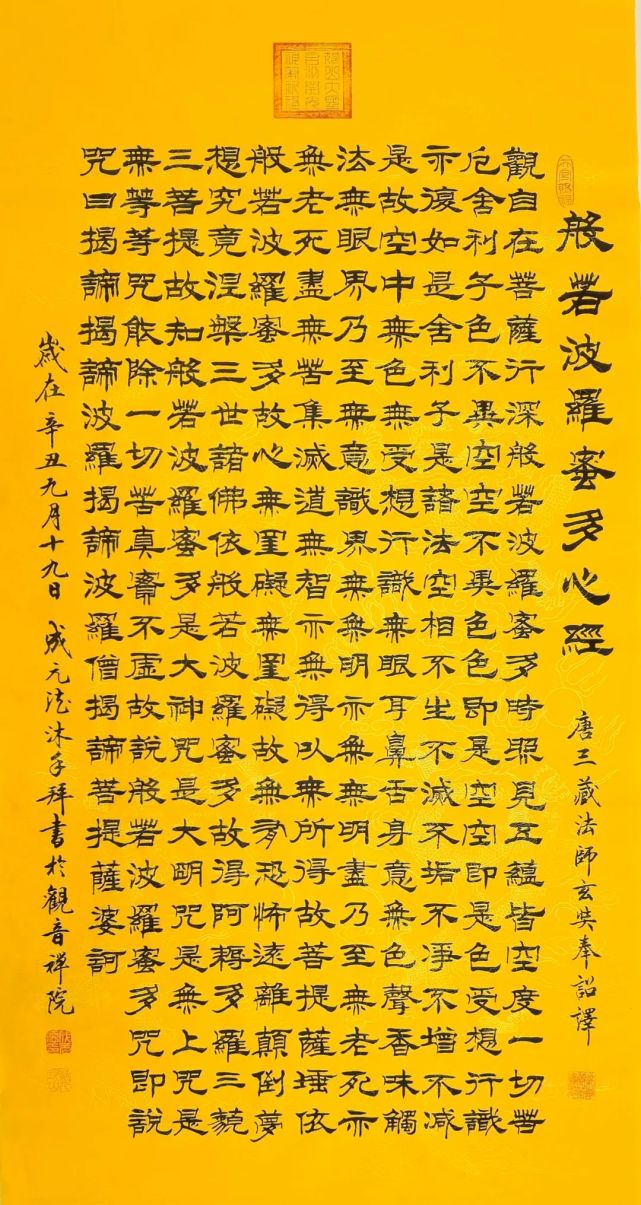 般若波羅蜜多心經
唐三藏法師玄奘奉詔譯
觀自在菩薩行深般若波羅蜜多時照見五蘊皆空度一切苦
厄舍利子色不異空空不異色色即是空空即是色受想行識
亦復如是舍利子是諸法空相不生不滅不垢不淨不增不減
是故空中無色無受想行識無眼耳鼻舌身意無色聲香味觸
法無眼界乃至無意識界無無明亦無無明盡乃至無老死亦
無老死盡無苦集滅道無智亦無得以無所得故菩提薩埵依
般若波羅蜜多故心無罣礙無罣礙故無有恐怖遠離顛倒夢
想究竟涅槃三世諸佛依般若波羅蜜多故得阿耨多羅三藐
三菩提故知般若波羅蜜多是大神咒是大明咒是無上咒是
無等等咒能除一切苦真實不虛故說般若波羅蜜多咒即說
咒曰揭諦揭諦波羅揭諦波羅僧揭諦菩提薩婆訶
歲在辛丑九月十九日成元法沐手拜書於觀音禪院